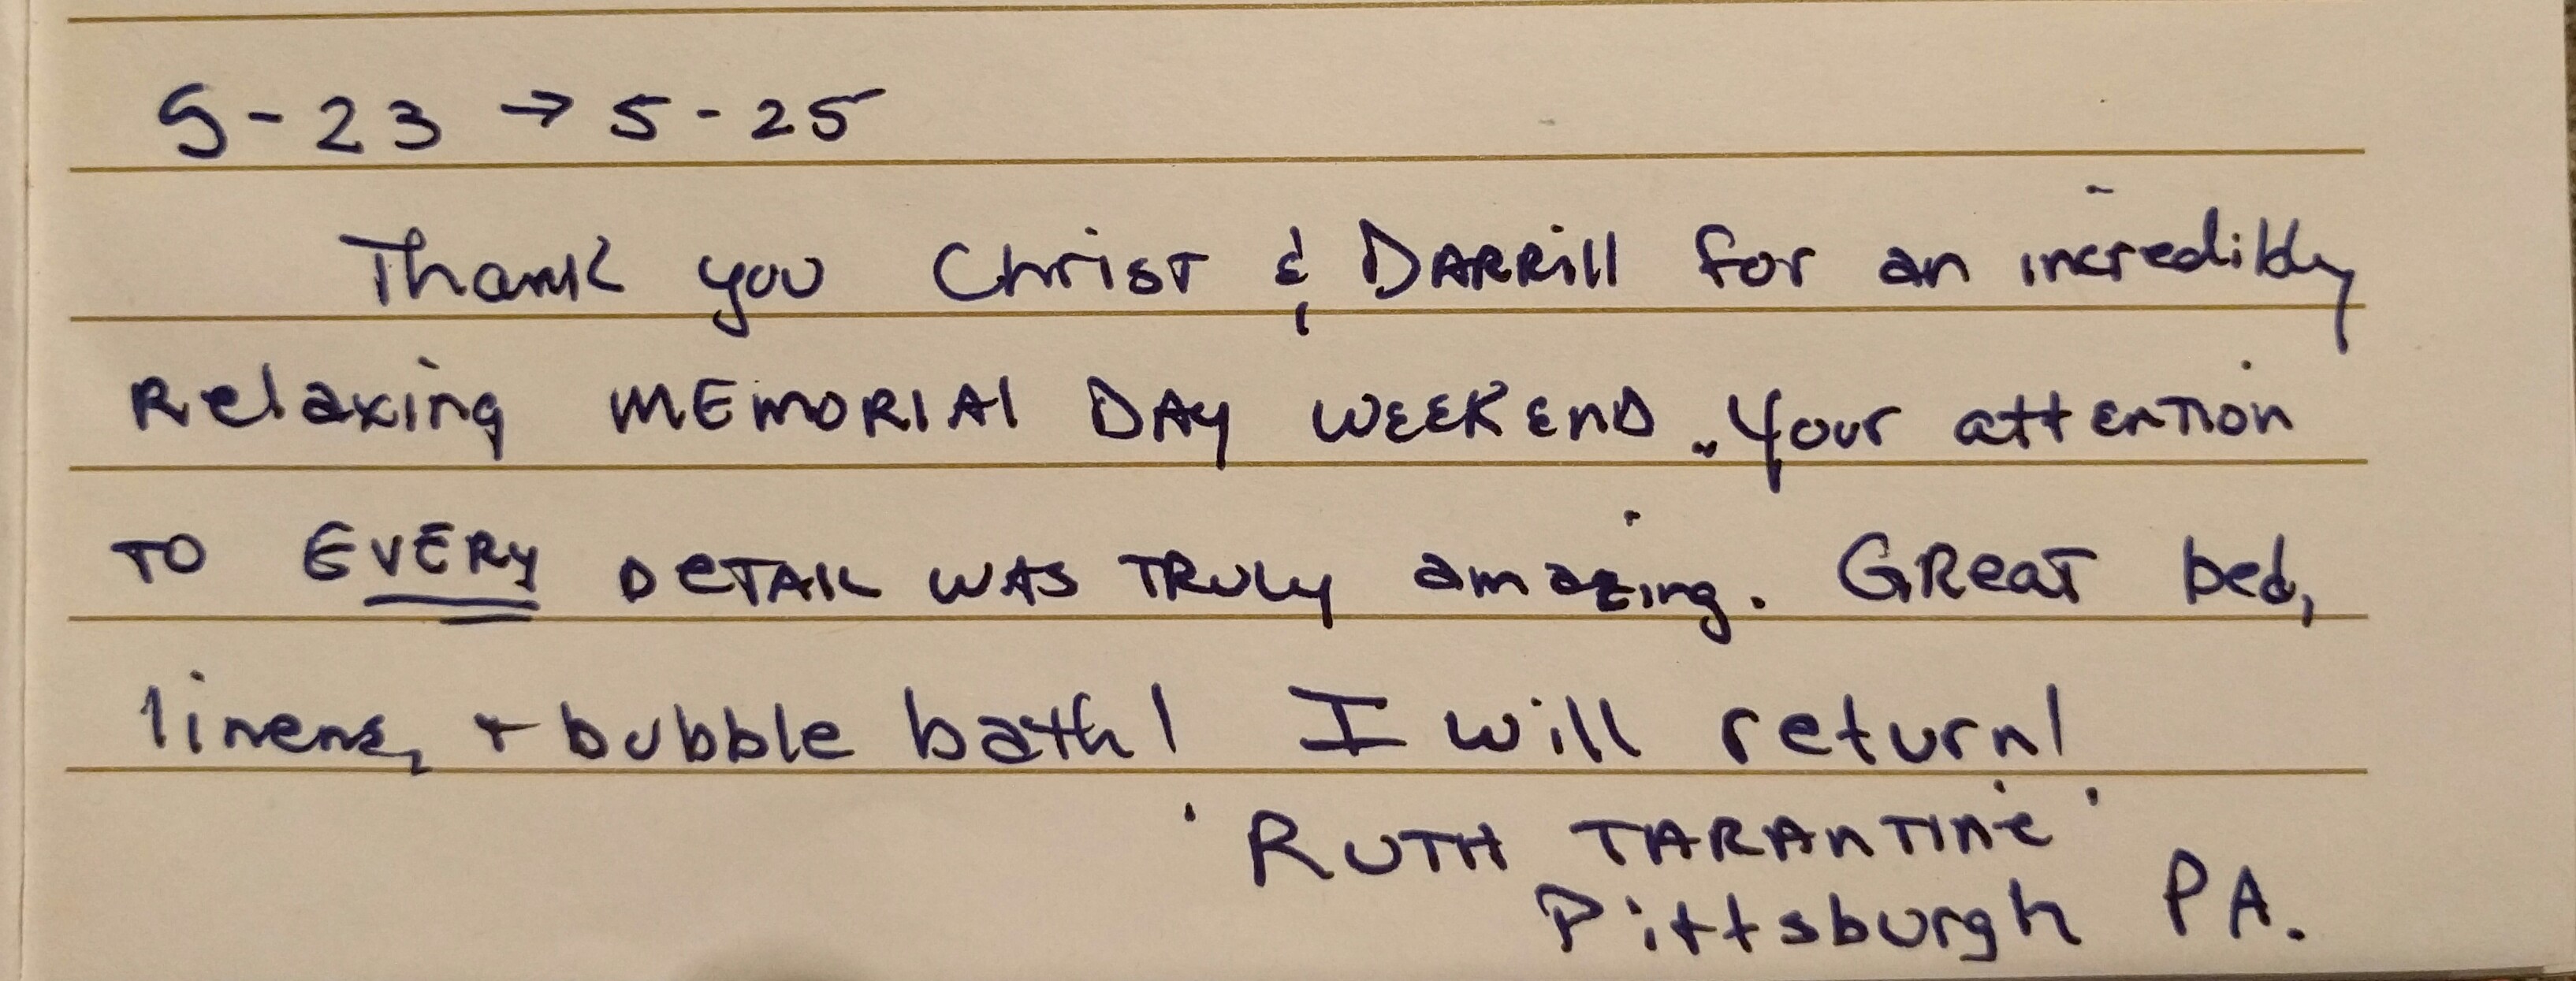 5-23 → 5-25
Thank you Christ & DARRill for an incredibly
Relaxing MEMORIAl DAY WEEKEND. Your attention
TO EVERY DETAIL WAS TRULY amazing. GReaT bed,
linens, + bubble bath! I will return!
RUTH TARANTINE
Pittsburgh PA.